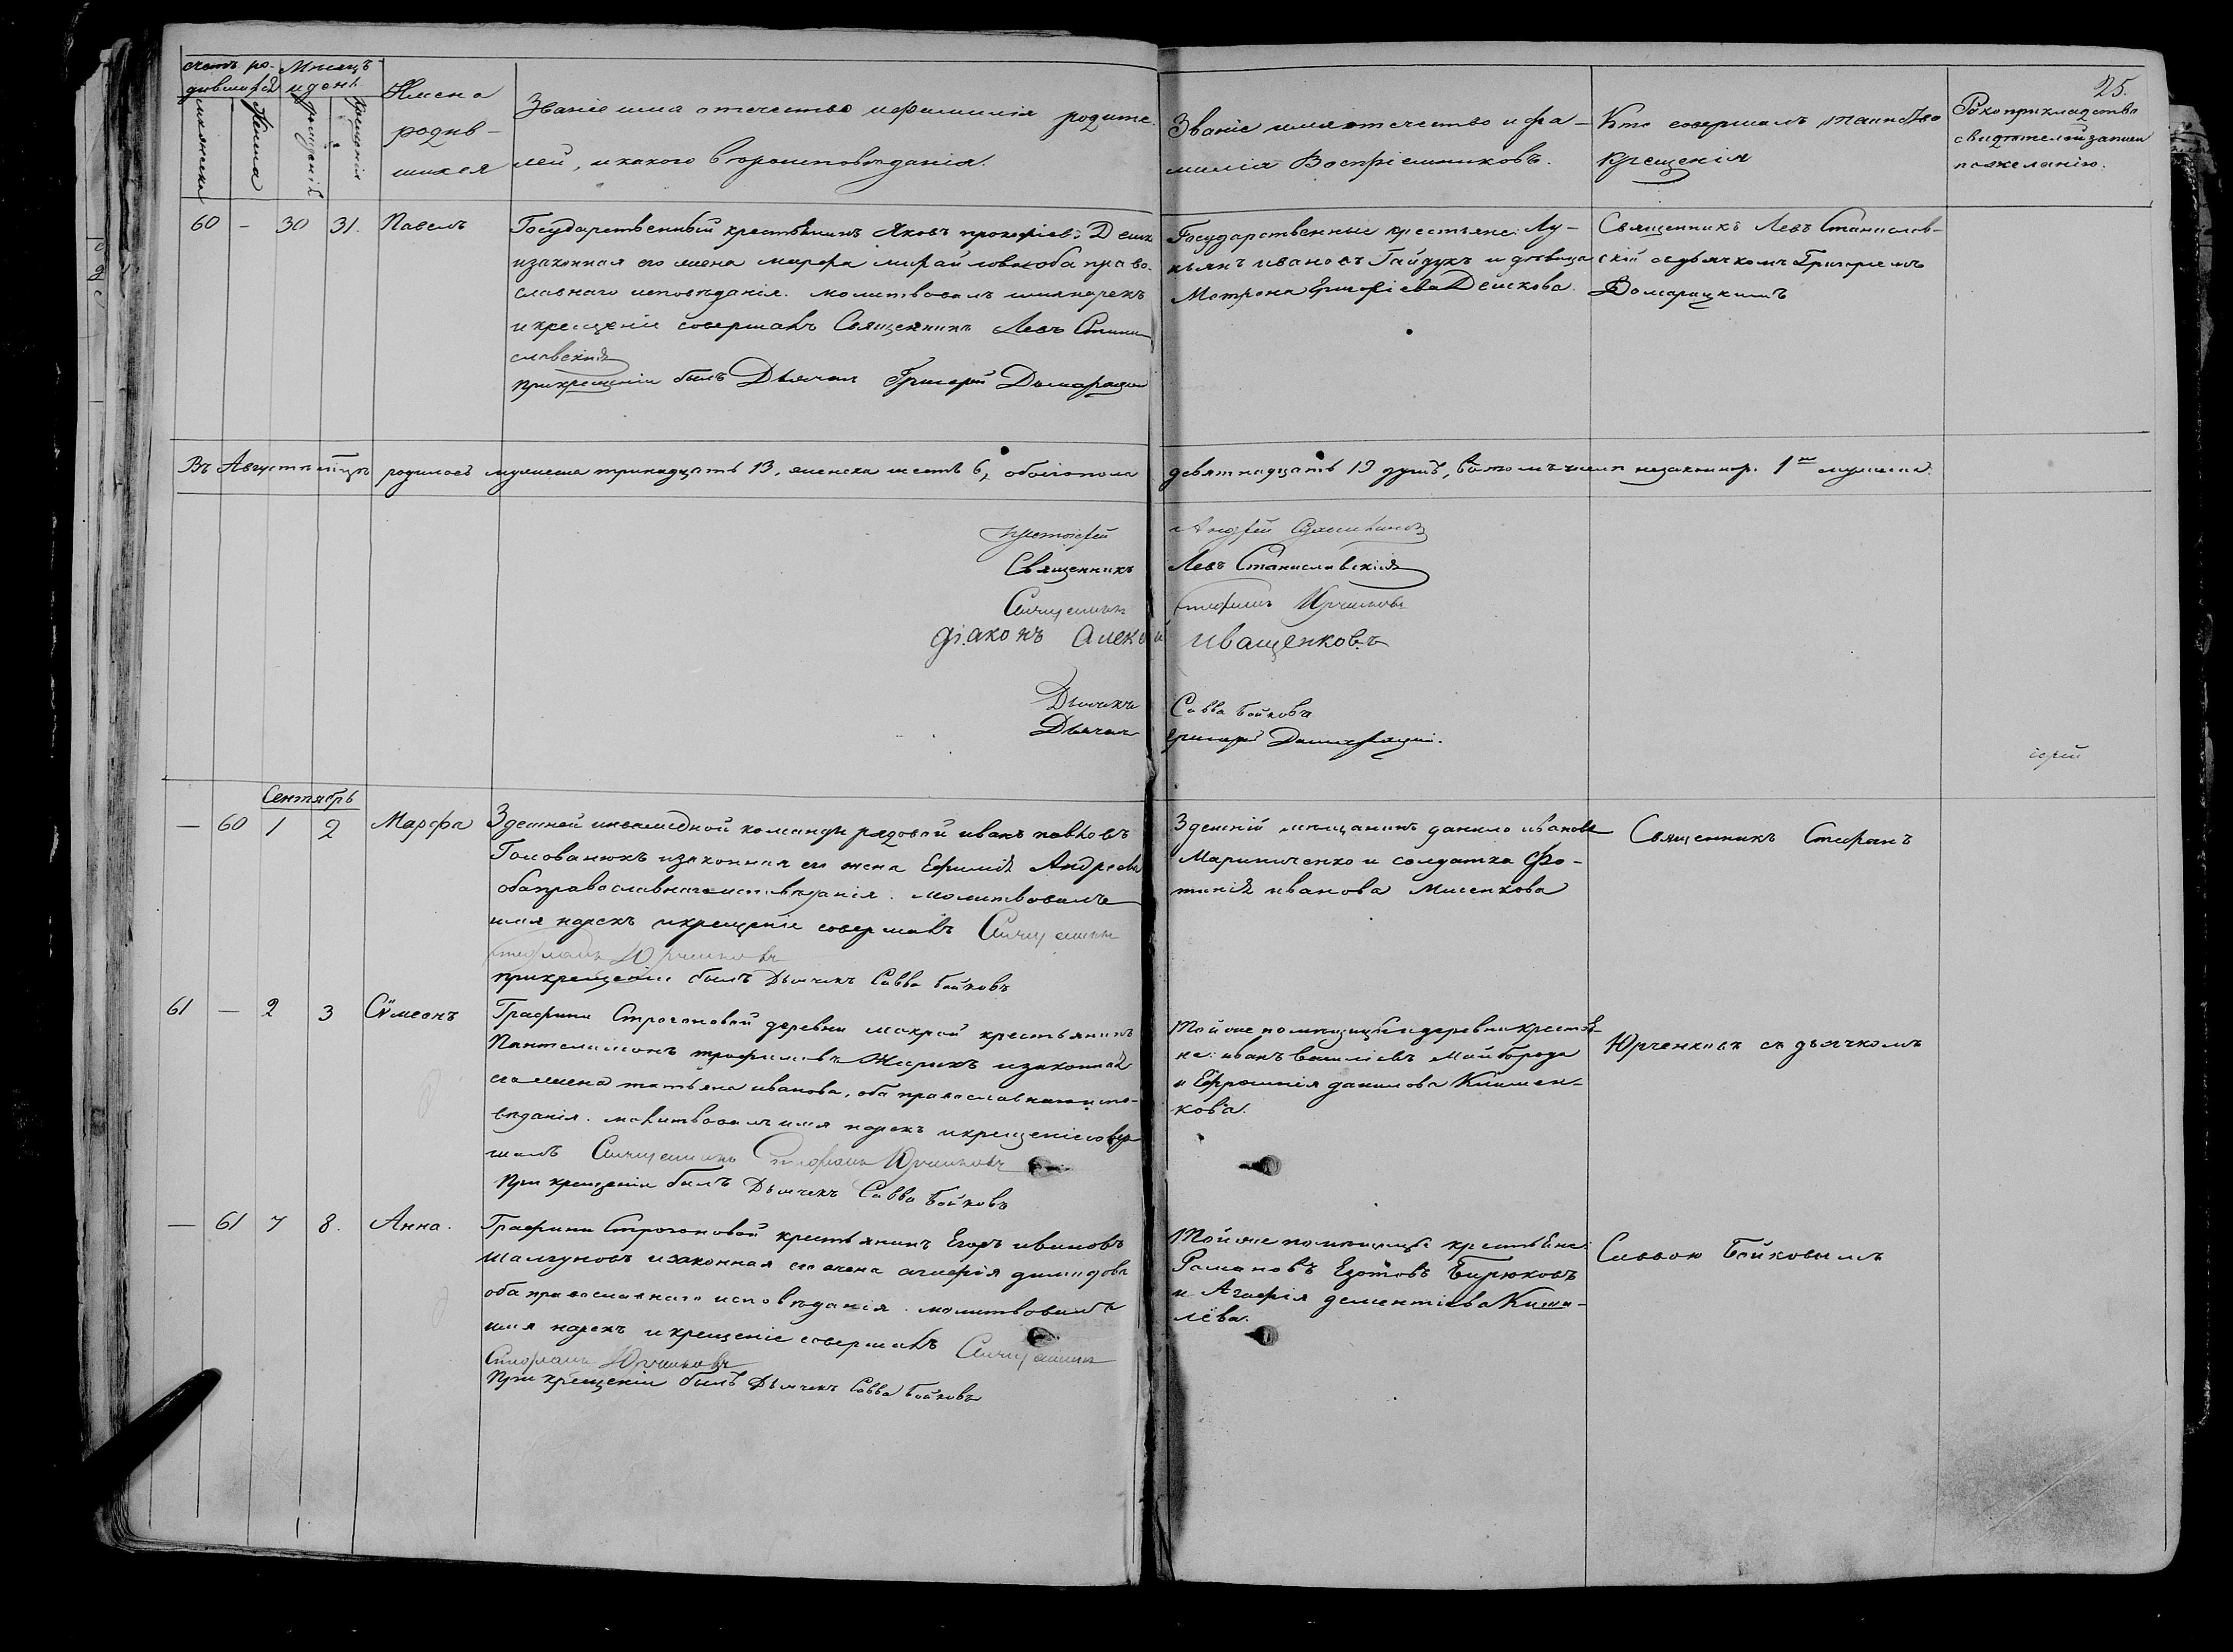 25.
Счетъ ро-
дившихся
Мѣсяцъ
и день
мужеска
женска
рожденія
крещенія
Имена
родив-
шихся
Званіе имя отечество и фамилія родите-
лей, и какого вѣроисповѣданія.
Званіе имя отечество и фа-
милія Воспріемниковъ.
Кто совершалъ таинство
крещенія
Рукоприкладство
свидѣтелей записи
по желанію.
60 – 30 31. Павелъ
Государственный крестьянинъ Яковъ Прокофіевъ
и законная его жена Марфа Михайлова оба право-
славнаго исповѣданія. молитвовалъ имя нарекъ
и крещеніе совершалъ Священникъ Левъ Стани
славскій
при крещеніи былъ Дьячокъ Григорій
Государственные крестьяне: Лу-
кьянъ Ивановъ Гайдукъ и девица
Мотрона Григоріева Дейкова.
Священникъ Левъ Станислав-
скій с дьячкомъ Григоріемъ
Домарацкимъ
Въ Августѣ мцѣ родилось мужеска тринадцать 13, женска шесть 6, обоего пола девятнадцать 19 душъ, въ томъ числѣ незаконнор. 1 мужеска.
Протоіерей Андрей
Священникъ Левъ Станиславскій
Священникъ Стефанъ Юрченковъ
діаконъ Алексѣй Иващенковъ
Дьячекъ Савва Бойковъ
Дьячокъ Григорій
іерей
Сентябрь
– 60 1 2 Марфа
Здешней инвалидной команды рядовой Иванъ Павловъ
Голованюкъ и законная его жена Ефимія Андреева
оба православнаго исповѣданія. молитвовалъ
имя нарекъ и крещеніе совершалъ Священникъ
Стефанъ Юрченковъ
при крещеніи былъ Дьячекъ Савва Бойковъ
Здешній мѣщанинъ Данило Ивановъ
Мариниченко и солдатка Фо-
тинія Иванова Мисенкова
Священникъ Стефанъ
61 – 2 3 Сѵмеонъ
Графини Строгоновой деревни Мокрой крестьянинъ
Пантелимонъ Трофимовъ и законная
его жена Татьяна Иванова, оба православнаго испо-
вѣданія. молитвовалъ имя нарекъ и крещеніе совер
шалъ Священникъ Стефанъ Юрченковъ
При крещеніи былъ Дьячекъ Савва Бойковъ
Той же помещицы и деревни крестья-
не: Иванъ Василіевъ Майборода
и Ефросинія Данилова Клименкова.
Юрченковъ съ дьячкомъ
– 61 7 8. Анна.
Графини Строгоновой крестьянинъ Егоръ Ивановъ
Шалгуновъ и законная его жена
оба православнаго исповѣданія. молитвовалъ
имя нарекъ и крещеніе совершалъ Священникъ
Стефанъ Юрченковъ
При крещеніи былъ Дьячекъ Савва Бойковъ
Той же помещицы крестьяне:
Романовъ Бирюковъ
и Агафія Дементіева Кисе-
лева.
Саввою Бойковымъ